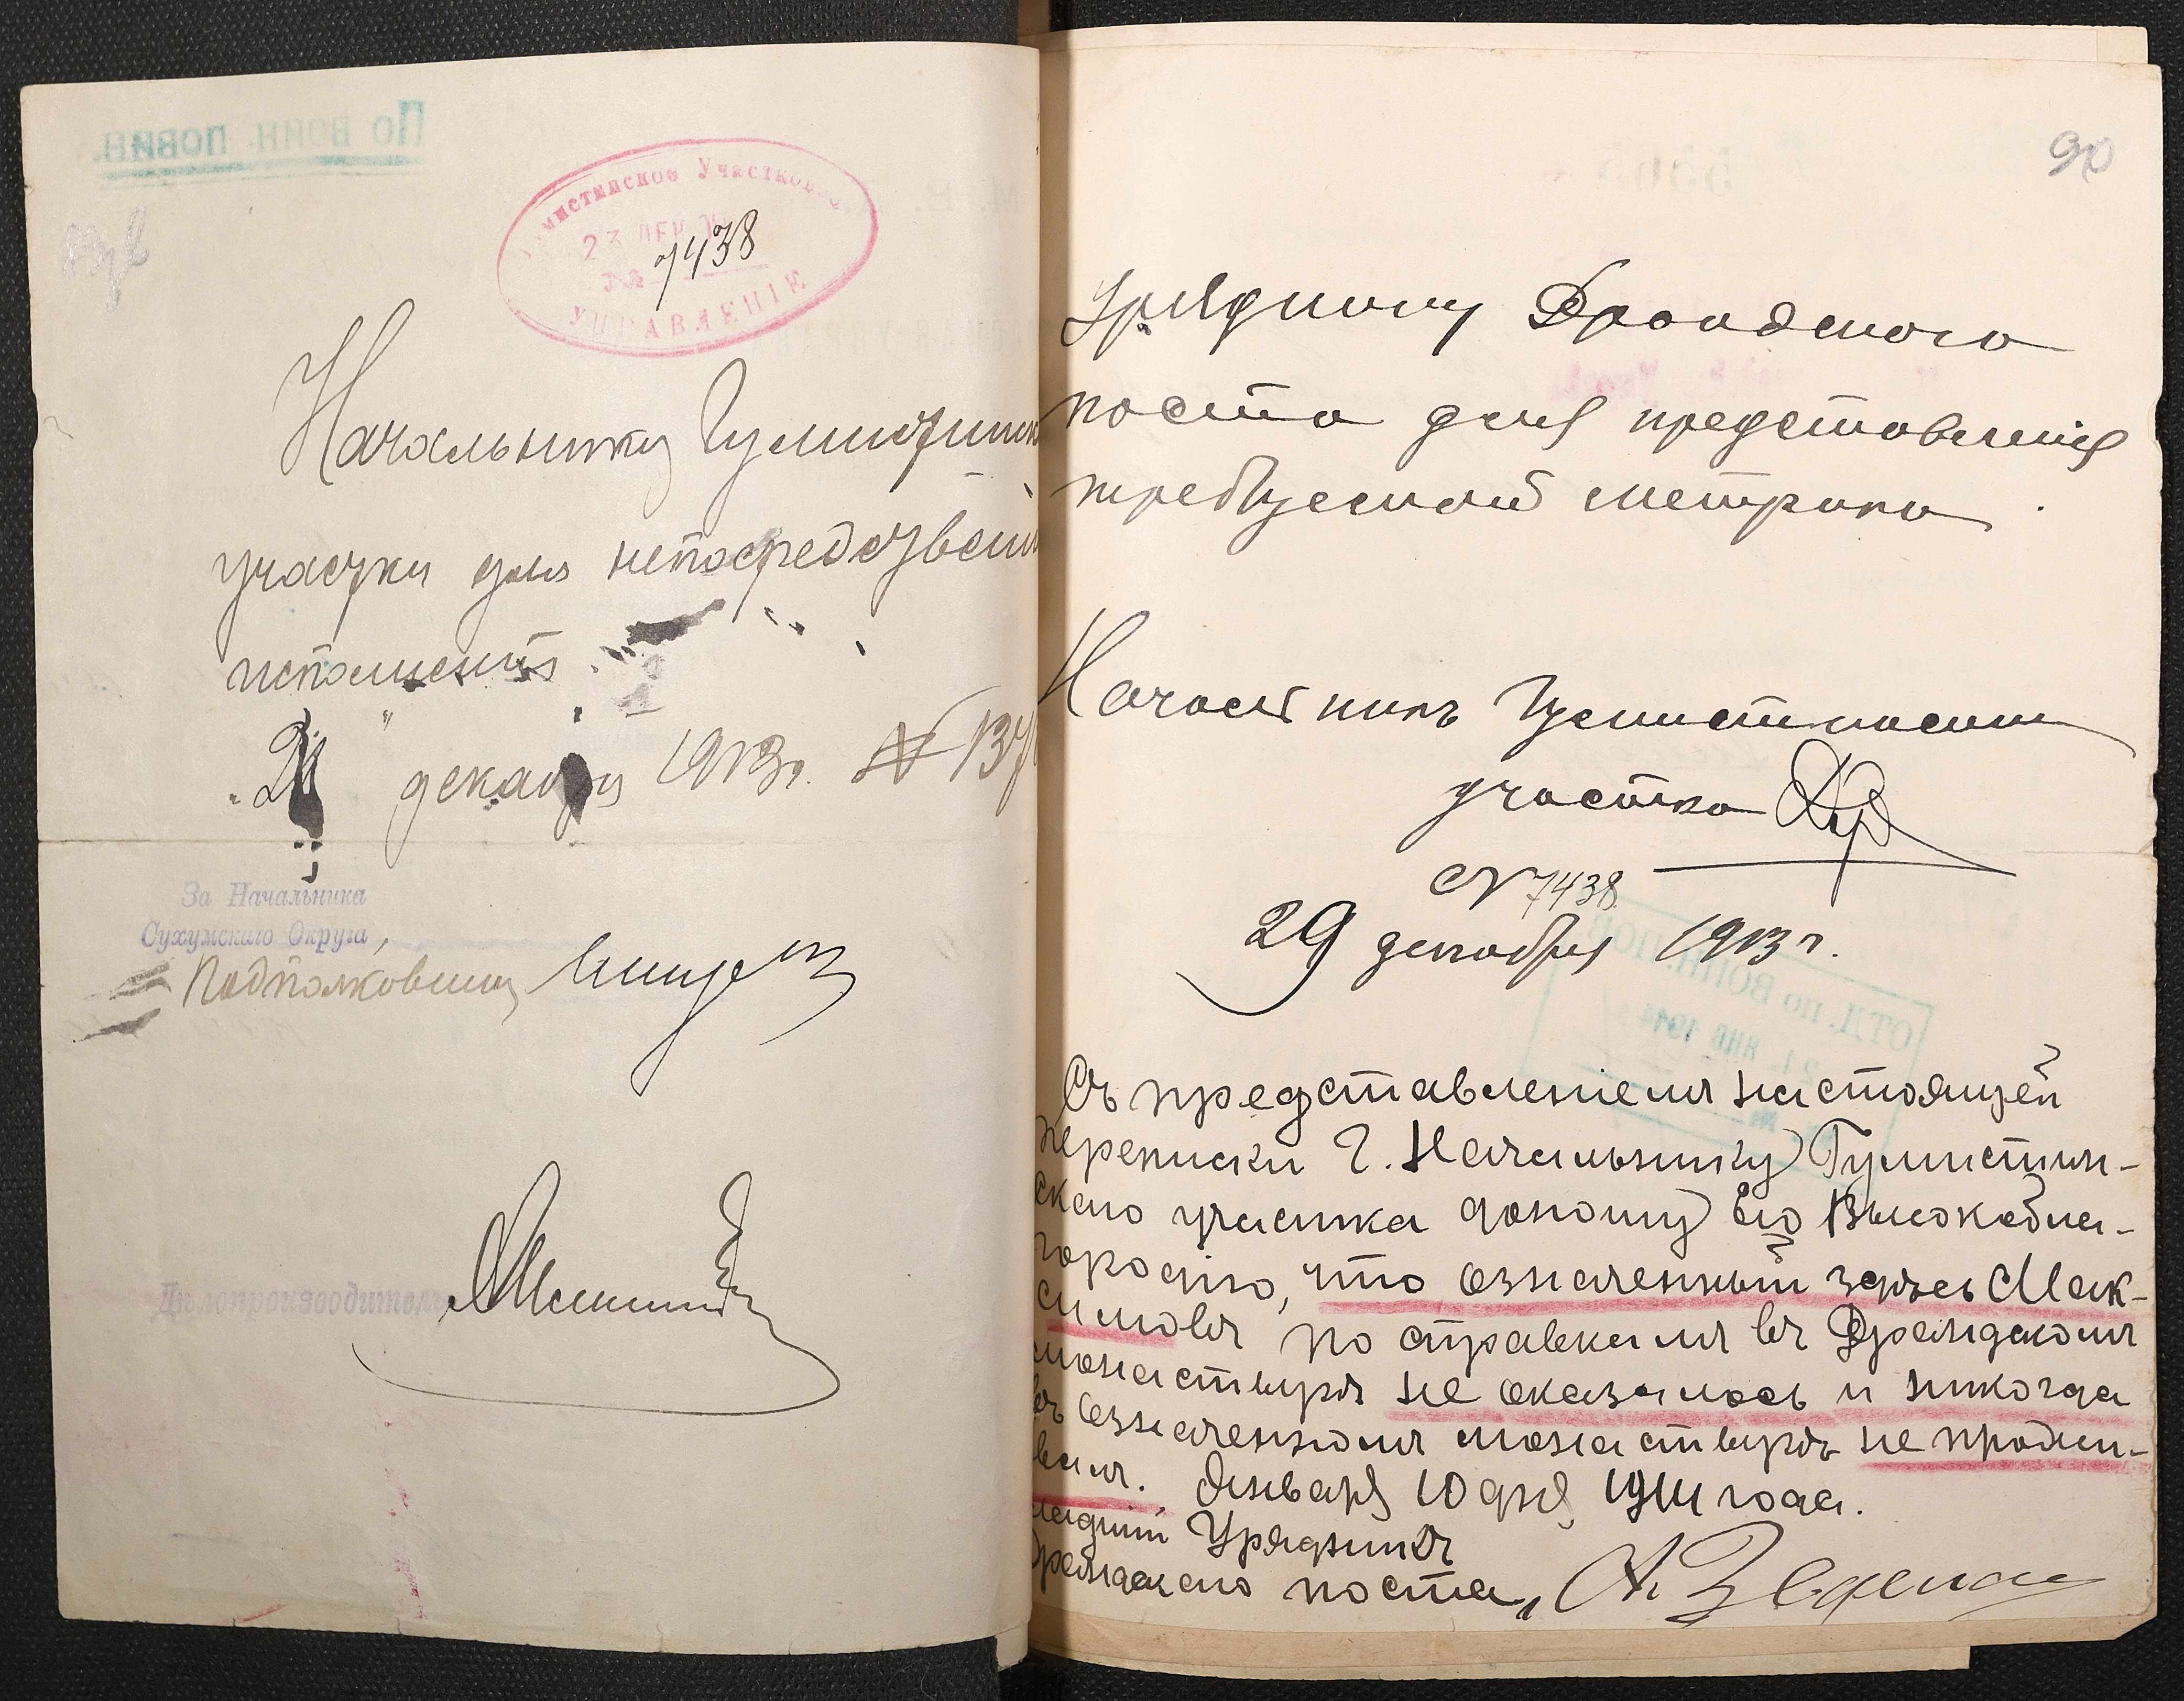 По воин. повин.
Гумистинское Участковое
23 ДЕК
№ 7438
УПРАВЛЕНІЕ
Начальнику Гумистинск
участка для непосредствен
исполненія
21 " декабря 1913 г. №
За Начальника
Сухумскаго Округа,
Подполковникъ
Дѣлопроизводитель
90
Уряднику Драндскаго
поста для представленія
требуемой метрики.
Начальникъ Гумистинскаго
участка
№ 7438
29 декабря 1913 г.
ОТД. по ВОИН. ПОВ
21 ЯНВ 1914
Съ представленіемъ настоящей
переписки Г. Начальнику Гумистин-
скаго участка доношу Его Высокобла-
городію, что означенный здѣсь Мак-
симовъ по справкамъ въ Драндскомъ
монастырѣ не оказалось и никогда
въ означенномъ монастырѣ не прожи-
валъ. Января 10 дня 1914 года.
младшій Урядникъ
Драндскаго поста,